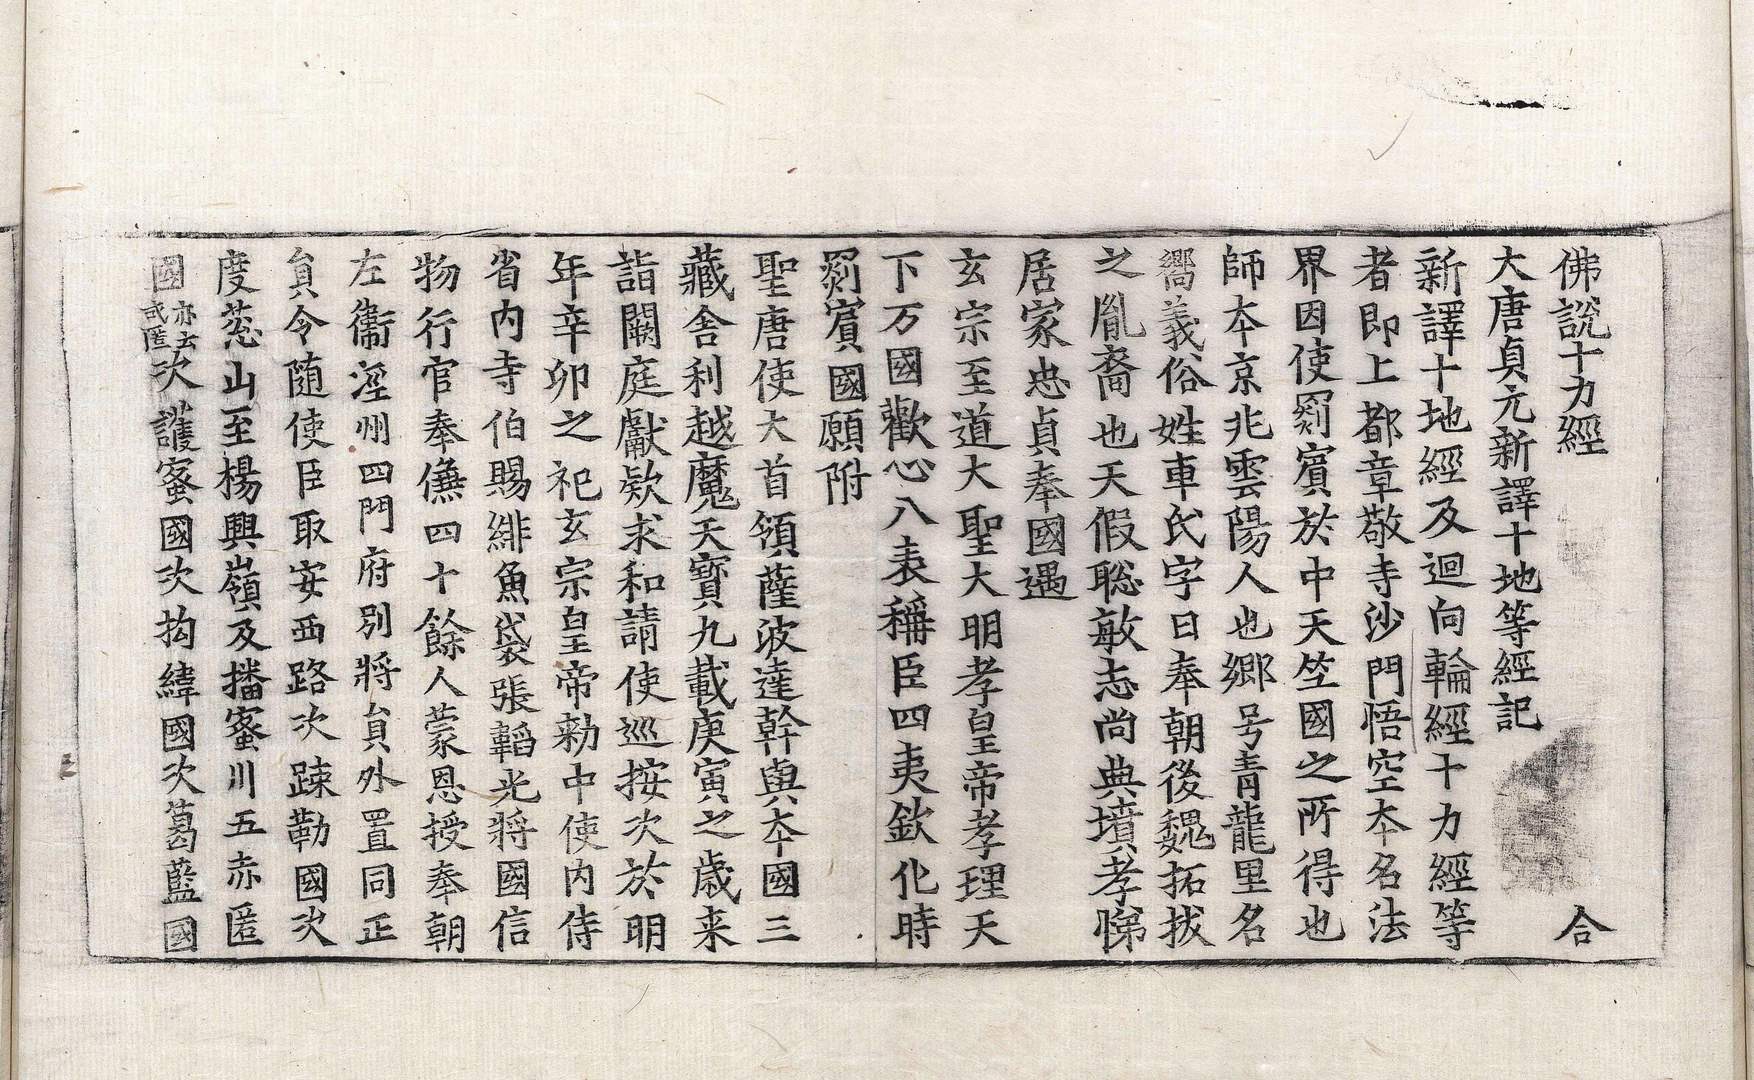 佛說十力經　合
大唐貞元新譯十地等經記
新譯十地經及迴向輪經十力經等
者即上都章敬寺沙門悟空本名法
界因使罽賓於中天竺國之所得也
師本京兆雲陽人也鄉号青龍里名
嚮義俗姓車氏字曰奉朝後魏拓拔
之胤裔也天假聡敏志尚典墳孝悌
居家忠貞奉國遇
玄宗至道大聖大明孝皇帝孝理天
下万國歡心八表稱臣四夷欽化時
罽賓國願附
聖唐使大首領薩波達幹與本國三
藏舍利越魔天寶九載庚寅之歲来
詣闕庭獻欵求和請使巡按次於明
年辛卯之祀玄宗皇帝勑中使内侍
省内寺伯賜緋魚袋張韜光將國信
物行官奉傔四十餘人蒙恩授奉朝
左衞涇州四門府別將貟外置同正
貟令随使臣取安西路次踈勒國次
度葱山至楊興嶺及播蜜川五赤匿
國亦云式匿次護蜜國次拘緯國次葛藍國